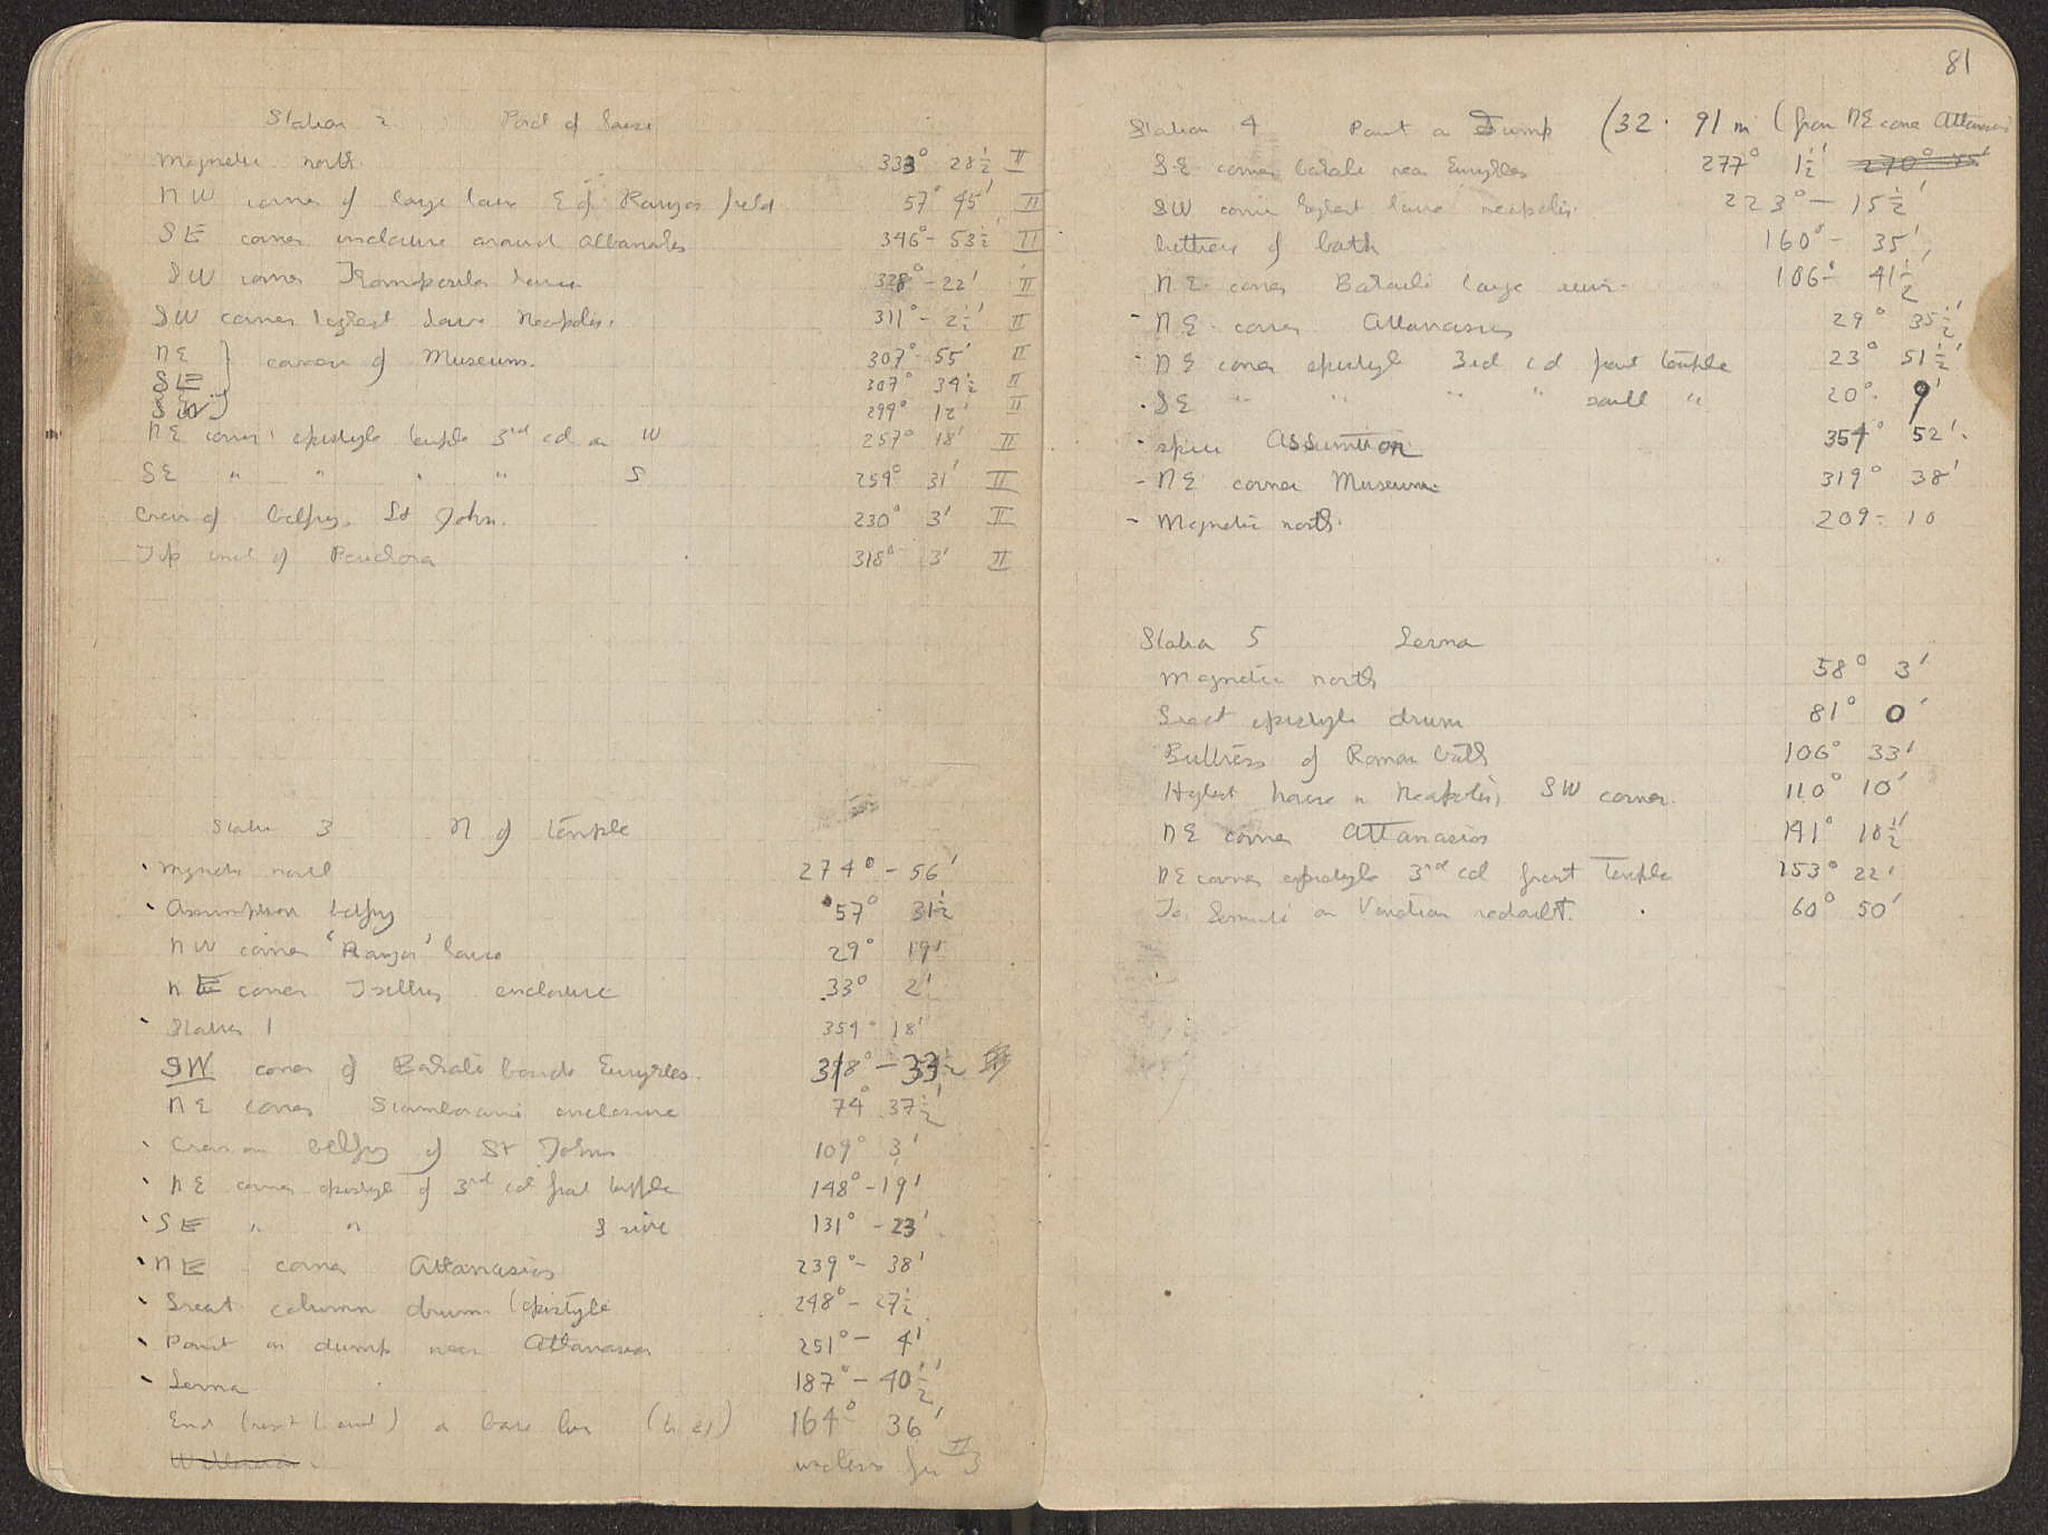 Station 2 of house
Magnetic north. 333° 28½ II
NW corner of large house E of Rangos field 57° 45' II
SE corner enclosure around Albanakes 346° - 53½' II
SW corner house 328° - 22' II
SW corner highest house Neapolis. 311° - 2½' II
NE } corner of Museum. 307° 55' II
SE 307° 34½ II
SW } 299° 12' II
NE corner epistyle temple 3rd col on W 257° 18' II
SE " " " " S 259° 31' II
Cross of belfry, St John. 230° 3' II
Top of 318° 3' II
Station 3 N of temple
Magnetic north 274° - 56'
Assumption belfry 57° 31½
NW corner 'Rangos' house 29° 19'
NE corner enclosure 33° 2'
Station 1 354° 18'
SW corner of Bakali beside Eurykles. 318° - 33½
NE corner enclosure 74° 37½'
Cross on belfry of St John 109° 3'
NE corner epistyle of 3rd col front temple 148° - 19'
SE " " S side 131° - 23'
NE corner Attanasios 239° - 38'
Great column drum (epistyle 248° - 27½
Point on dump near Attanasios 251° - 4'
Lerna 187° - 40½'
End a base line 164° 36'
useless for II 3
81
Station 4 Point on Dump (32. 91 m (from NE corner Attanasios
SE corner Bakali near Eurykles 277° 1½' 270° 45'
SW corner highest house neapolis. 223° - 15½'
buttress of bath 160° - 35'
NE corner Bakali large ruin. 106° - 41½'
- NE corner Attanasios 29° 35½'
- NE corner epistyle 3rd col front temple 23° 51½'
. SE " " " " south " 20° 9'
- spire Assumtion 354° 52'.
- NE corner Museum. 319° 38'
- Magnetic north. 209 - 10
Station 5 Lerna
Magnetic north 58° 3'
Great epistyle drum 81° 0'
Buttress of Roman bath 106° 33'
Highest house in Neapolis, SW corner. 110° 10'
NE corner Attanasios 141° 18½'
NE corner epistyle 3rd col front Temple 153° 22'
To on Venetian redoubt. 60° 50'